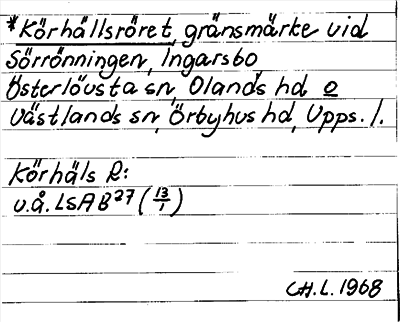 *Körhållsröret, gränsmärke vid
Sörrönningen, Ingarsbo
Österlövsta sn, Olands hd o
Västlands sn, Örbyhus hd, Upps. l.
Körhäls R:
u.å. LSA B27 (13/1)
CH.L. 1968